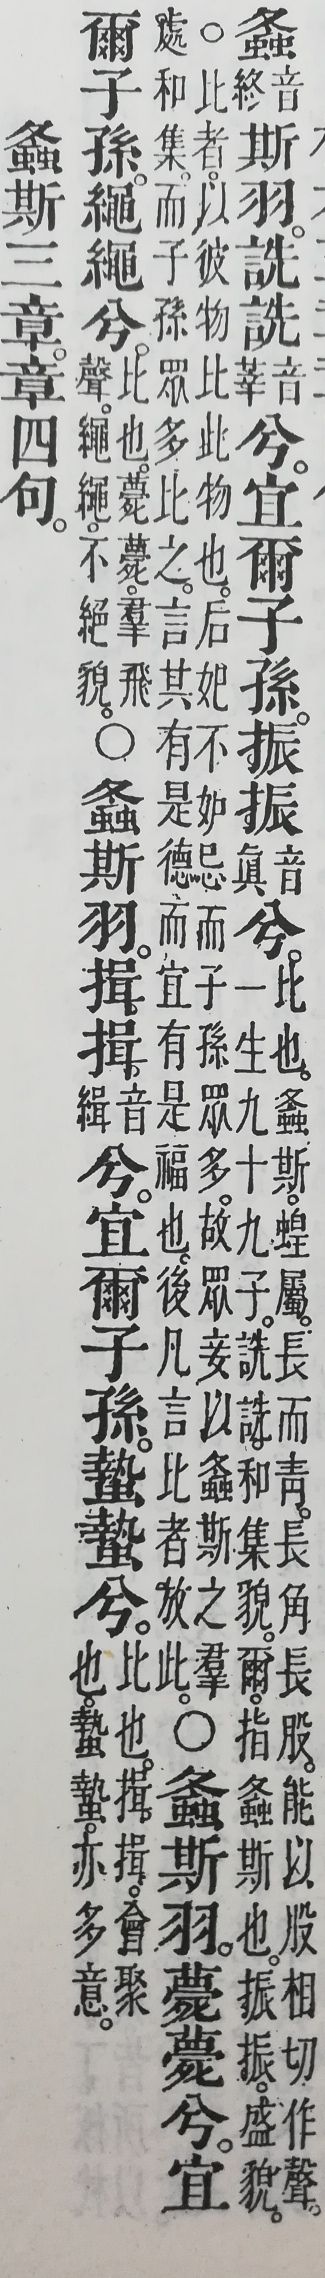 螽音終斯羽。詵詵音莘兮。宜爾子孫。振振音眞兮。比也。螽斯。蝗屬。長而青。長角長股。能以股相切作聲。一生九十九子。詵詵。和集貌。爾。指螽斯也。振振。盛貌。
○比者。以彼物比此物也。后妃不妬忌而子孫眾多。故眾妾以螽斯之羣處和集。而子孫眾多比之。言其有是德而宜有是福也。後凡言比者放此。○螽斯羽。薨薨兮。宜
爾子孫。繩繩兮。比也。薨薨。羣飛聲。繩繩。不絕貌。○螽斯羽。揖揖音緝兮。宜爾子孫。蟄蟄兮。比也。揖揖。會聚也。蟄蟄。亦多意。
螽斯三章。章四句。